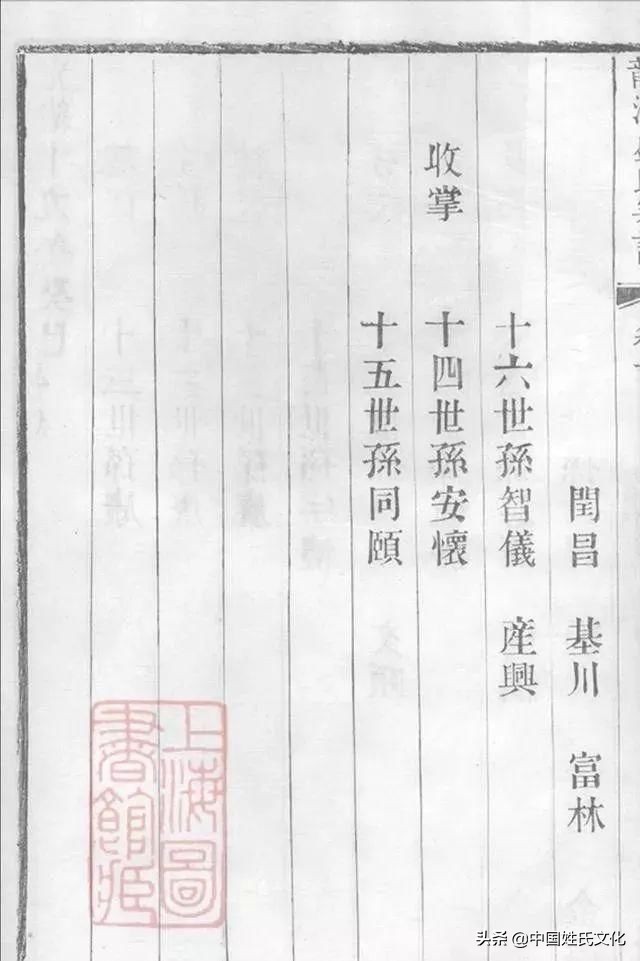 閏昌 基川 富林
十六世孫智儀 産興
收掌 十四世孫安懷
十五世孫同頤
上海圖
書館藏
头条 @中国姓氏文化